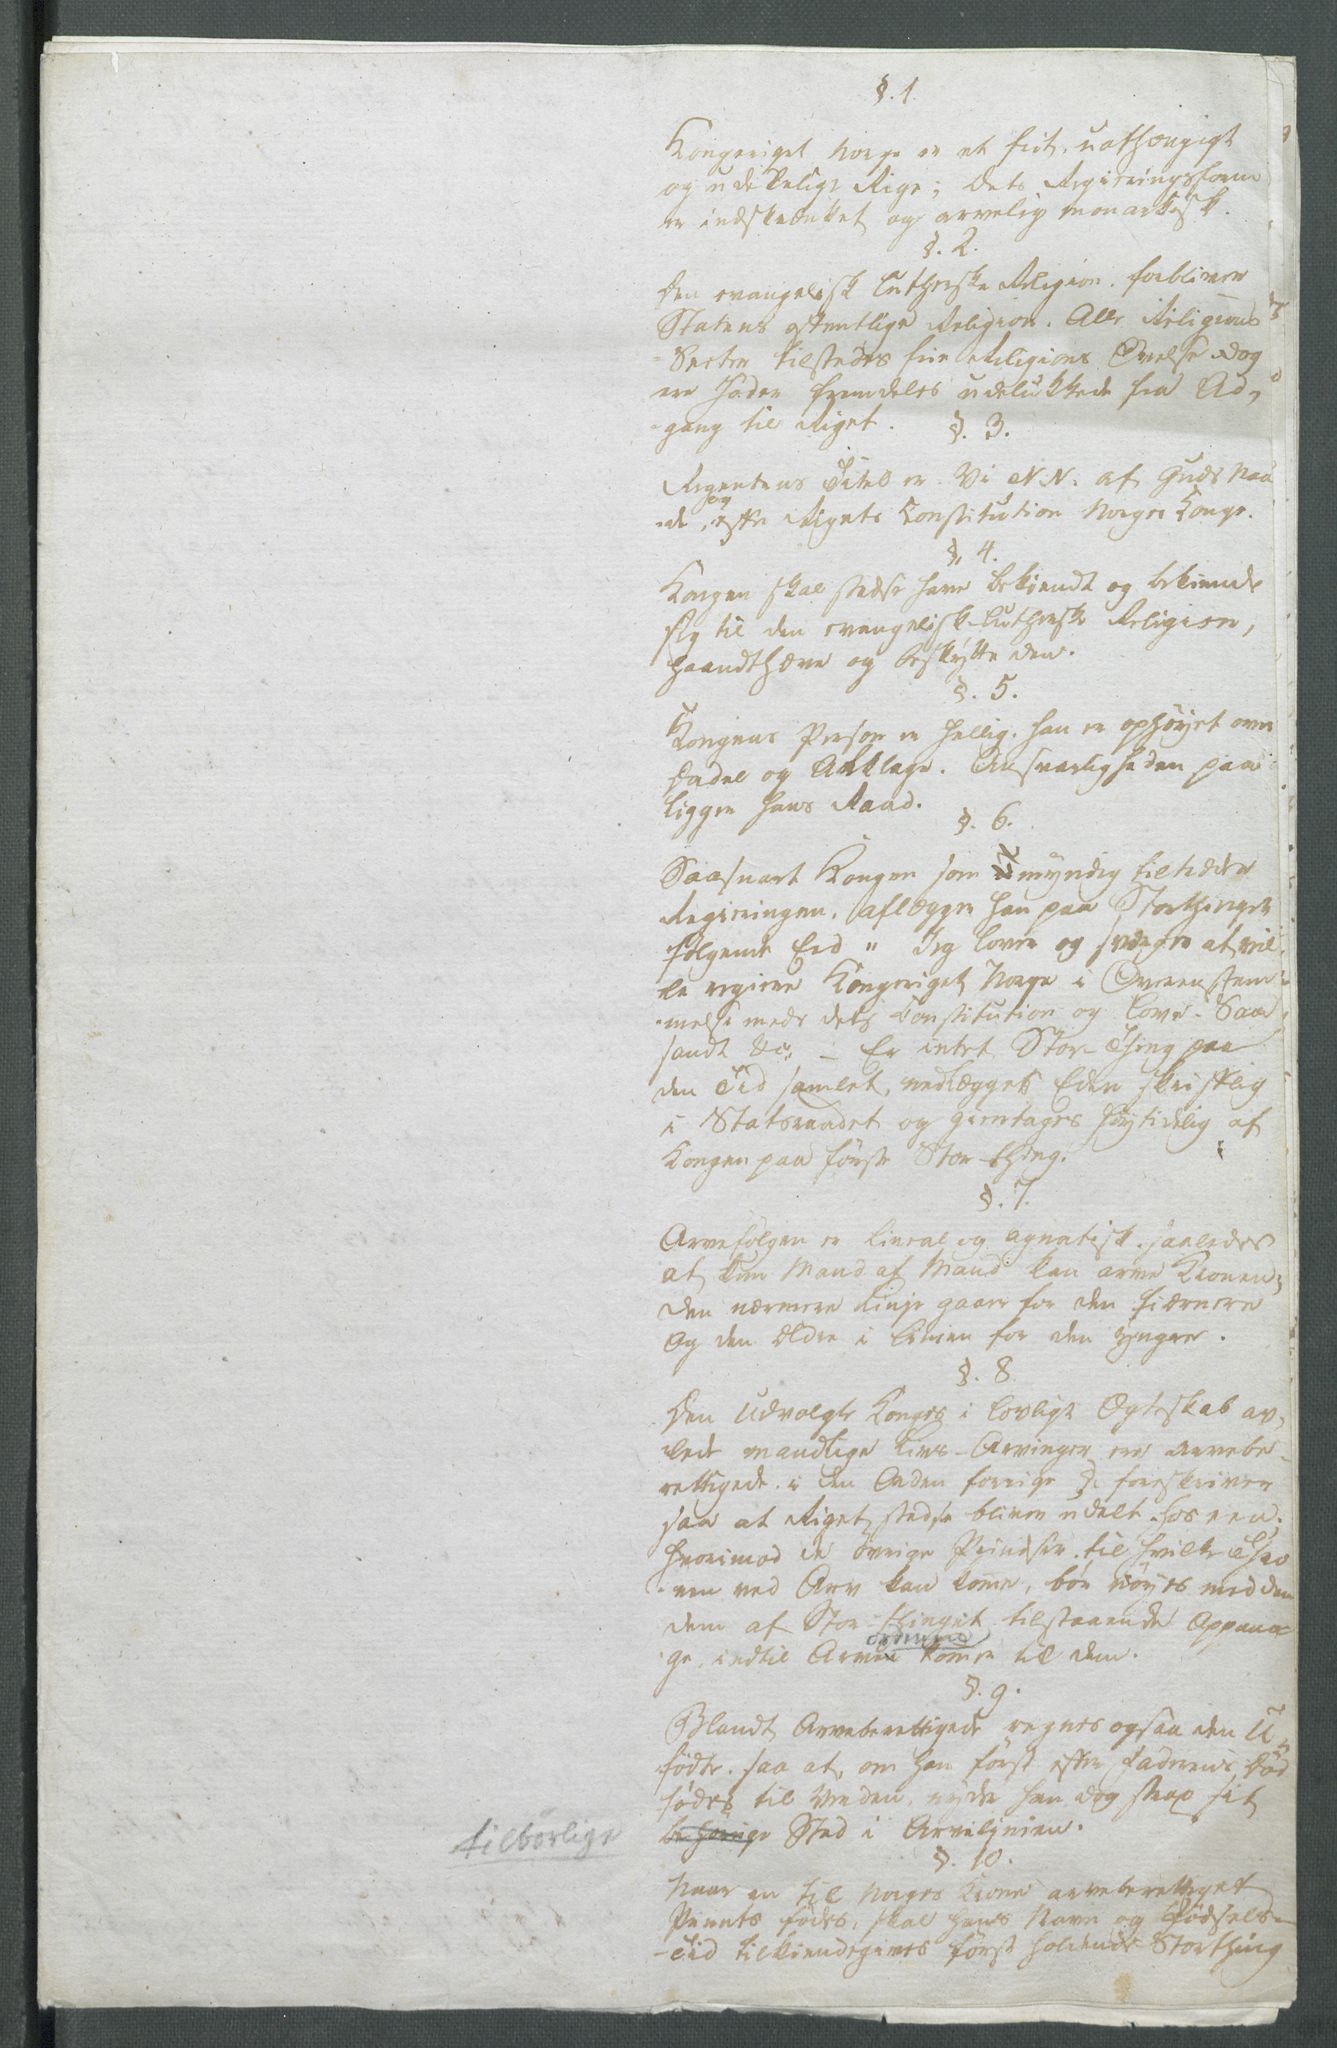 §. 1
Kongeriget Norge er et frit, uafhængigt
og udeleligt Rige; dets Regieringsform
er indskrænket og arvelig monarkisk.
§. 2.
Den evangelisk lutherske Religion forbliver
Statens offentlige Religion. Alle Religions
-Secter tilstedes frie Religions Øvelse dog
ere Jøder fremdeles udelukkede fra Ad-
-gang til Riget.
§. 3.
Regentens Titel er Vi N.N. af Guds Naa
-de, og efter Rigets Constitution Norges Konge.
§. 4.
Kongen skal stedse have bekiendt og bekiende
sig til den evangelisk-lutherske Religion,
haandthæve og beskytte den.
§. 5.
Kongens Person er hellig. han er ophöyet over
Dadel og Anklage. Ansvarligheden paa
ligger hans Raad.
§. 6.
Saasnart Kongen som myndig tiltræder
Regieringen, aflægger han paa Storthinget
følgende Eed " Jeg lover og sværger at vil-
le regiere Kongeriget Norge i Overensstem
-melse med dets Constitution og Love. Saa
sandt &c. - Er intet Stor-Thing paa
den Tid samlet, nedlægges Eden skriftlig
i Statsraadet og gientages höytidelig af
Kongen paa förste Stor-thing.
§. 7.
Arvefølgen er lineal og agnatisk, saaledes
at kun Mand af Mand kan arve Kronen;
den nærmere Linje gaaer for den fiærnere
og den Ældre i Linien for den yngre.
§. 8
Den udvalgte Konges i lovligt Ægteskab av-
lede mandlige Livs-Arvinger ere arvebe-
rettigede i den Orden forrige § foreskriver
saa at Riget stedse bliver udelt hos een,
hvorimod de övrige Prindser, til hvilke Thro
-nen ved Arv kan komme, bör nöyes med den
dem af Stor-thinget tilstaaende Appana-
ge, indtil Arven kommer til dem.
§. 9.
Blandt Arveberettigede regnes ogsaa den U-
födte, saa at, om han först efter Faderens Död
födes til Verden, nyder han dog strax sit
behörige Sted i Arvelinien.
tilbörlige
§. 10.
Naar en til Norges Krone arveberettiget
Prints födes, skal hans Navn og Födsels-
-Tid tilkiendegives först holdende Storthing